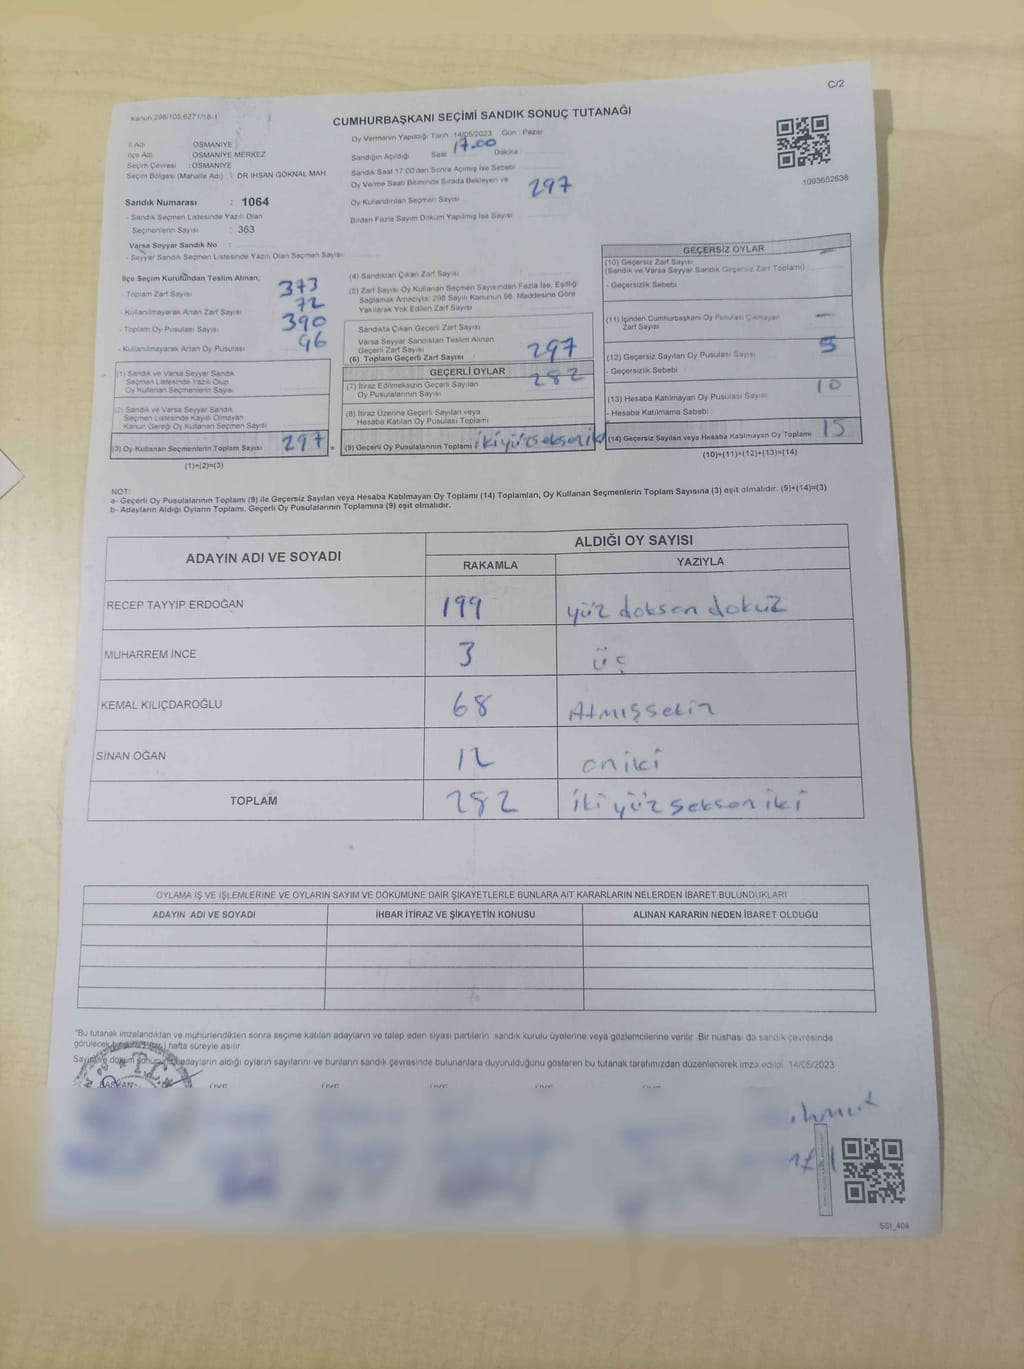 C/2
Kanun.298/105,6271/18-1
CUMHURBAŞKANI SEÇİMİ SANDIK SONUÇ TUTANAĞI
Oy Vermenin Yapıldığı Tarih 14/05/2023 Gün : Pazar
İl Adı OSMANİYE
İlçe Adı OSMANİYE MERKEZ
Seçim Çevresi : OSMANİYE
Seçim Bölgesi (Mahalle Adı) : DR İHSAN GÖKNAL MAH
Sandığın Açıldığı Saat 17.00 Dakika
Sandık Saat 17:00'dan Sonra Açılmış İse Sebebi
Oy Verme Saati Bitiminde Sırada Bekleyen ve
Oy Kullandırılan Seçmen Sayısı 297
Birden Fazla Sayım Döküm Yapılmış İse Sayısı
1093652638
Sandık Numarası : 1064
- Sandık Seçmen Listesinde Yazılı Olan
Seçmenlerin Sayısı : 363
Varsa Seyyar Sandık No :
- Seyyar Sandık Seçmen Listesinde Yazılı Olan Seçmen Sayısı
İlçe Seçim Kurulundan Teslim Alınan;
- Toplam Zarf Sayısı 373
- Kullanılmayarak Artan Zarf Sayısı 72
- Toplam Oy Pusulası Sayısı 390
- Kullanılmayarak Artan Oy Pusulası 96
(1) Sandık ve Varsa Seyyar Sandık
Seçmen Listesinde Yazılı Olup
Oy Kullanan Seçmenlerin Sayısı
(2) Sandık ve Varsa Seyyar Sandık
Seçmen Listesinde Kayıtlı Olmayan
Kanun Gereği Oy Kullanan Seçmen Sayısı
(3) Oy Kullanan Seçmenlerin Toplam Sayısı 297 =
(1)+(2)=(3)
(4) Sandıktan Çıkan Zarf Sayısı
(5) Zarf Sayısı Oy Kullanan Seçmen Sayısından Fazla İse, Eşitliği
Sağlamak Amacıyla, 298 Sayılı Kanunun 98. Maddesine Göre
Yakılarak Yok Edilen Zarf Sayısı
Sandıkta Çıkan Geçerli Zarf Sayısı
Varsa Seyyar Sandıktan Teslim Alınan
Geçerli Zarf Sayısı
(6) Toplam Geçerli Zarf Sayısı 297
GEÇERLİ OYLAR
(7) İtiraz Edilmeksizin Geçerli Sayılan
Oy Pusulalarının Sayısı 282
(8) İtiraz Üzerine Geçerli Sayılan veya
Hesaba Katılan Oy Pusulası Toplamı
(9) Geçerli Oy Pusulalarının Toplamı ikiyüzseksenik
GEÇERSİZ OYLAR
(10) Geçersiz Zarf Sayısı -
(Sandık ve Varsa Seyyar Sandık Geçersiz Zarf Toplamı)
- Geçersizlik Sebebi
(11) İçinden Cumhurbaşkanı Oy Pusulası Çıkmayan
Zarf Sayısı -
(12) Geçersiz Sayılan Oy Pusulası Sayısı 5
- Geçersizlik Sebebi :
(13) Hesaba Katılmayan Oy Pusulası Sayısı 10
- Hesaba Katılmama Sebebi
(14) Geçersiz Sayılan veya Hesaba Katılmayan Oy Toplamı 15
(10)+(11)+(12)+(13)=(14)
NOT:
a- Geçerli Oy Pusulalarının Toplamı (9) ile Geçersiz Sayılan veya Hesaba Katılmayan Oy Toplamı (14) Toplamları, Oy Kullanan Seçmenlerin Toplam Sayısına (3) eşit olmalıdır. (9)+(14)=(3)
b- Adayların Aldığı Oyların Toplamı, Geçerli Oy Pusulalarının Toplamına (9) eşit olmalıdır.
ADAYIN ADI VE SOYADI
ALDIĞI OY SAYISI
RAKAMLA YAZIYLA
RECEP TAYYİP ERDOĞAN 199 yüz doksan dokuz
MUHARREM İNCE 3 üç
KEMAL KILIÇDAROĞLU 68 Atmışsekiz
SİNAN OĞAN 12 oniki
TOPLAM 282 ikiyüz seksen iki
OYLAMA İŞ VE İŞLEMLERİNE VE OYLARIN SAYIM VE DÖKÜMÜNE DAİR ŞİKAYETLERLE BUNLARA AİT KARARLARIN NELERDEN İBARET BULUNDUKLARI
ADAYIN ADI VE SOYADI İHBAR İTİRAZ VE ŞİKAYETİN KONUSU ALINAN KARARIN NEDEN İBARET OLDUĞU
*Bu tutanak imzalandıktan ve mühürlendikten sonra seçime katılan adayların ve talep eden siyasi partilerin sandık kurulu üyelerine veya gözlemcilerine verilir. Bir nüshası da sandık çevresinde
görülecek hafta süreyle asılır.
Sayım ve döküm adayların aldığı oyların sayılarını ve bunların sandık çevresinde bulunanlara duyurulduğunu gösteren bu tutanak tarafımızdan düzenlenerek imza edildi. 14/05/2023
T.C.
BAŞKAN ÜYE ÜYE ÜYE ÜYE ÜYE
SSI_404